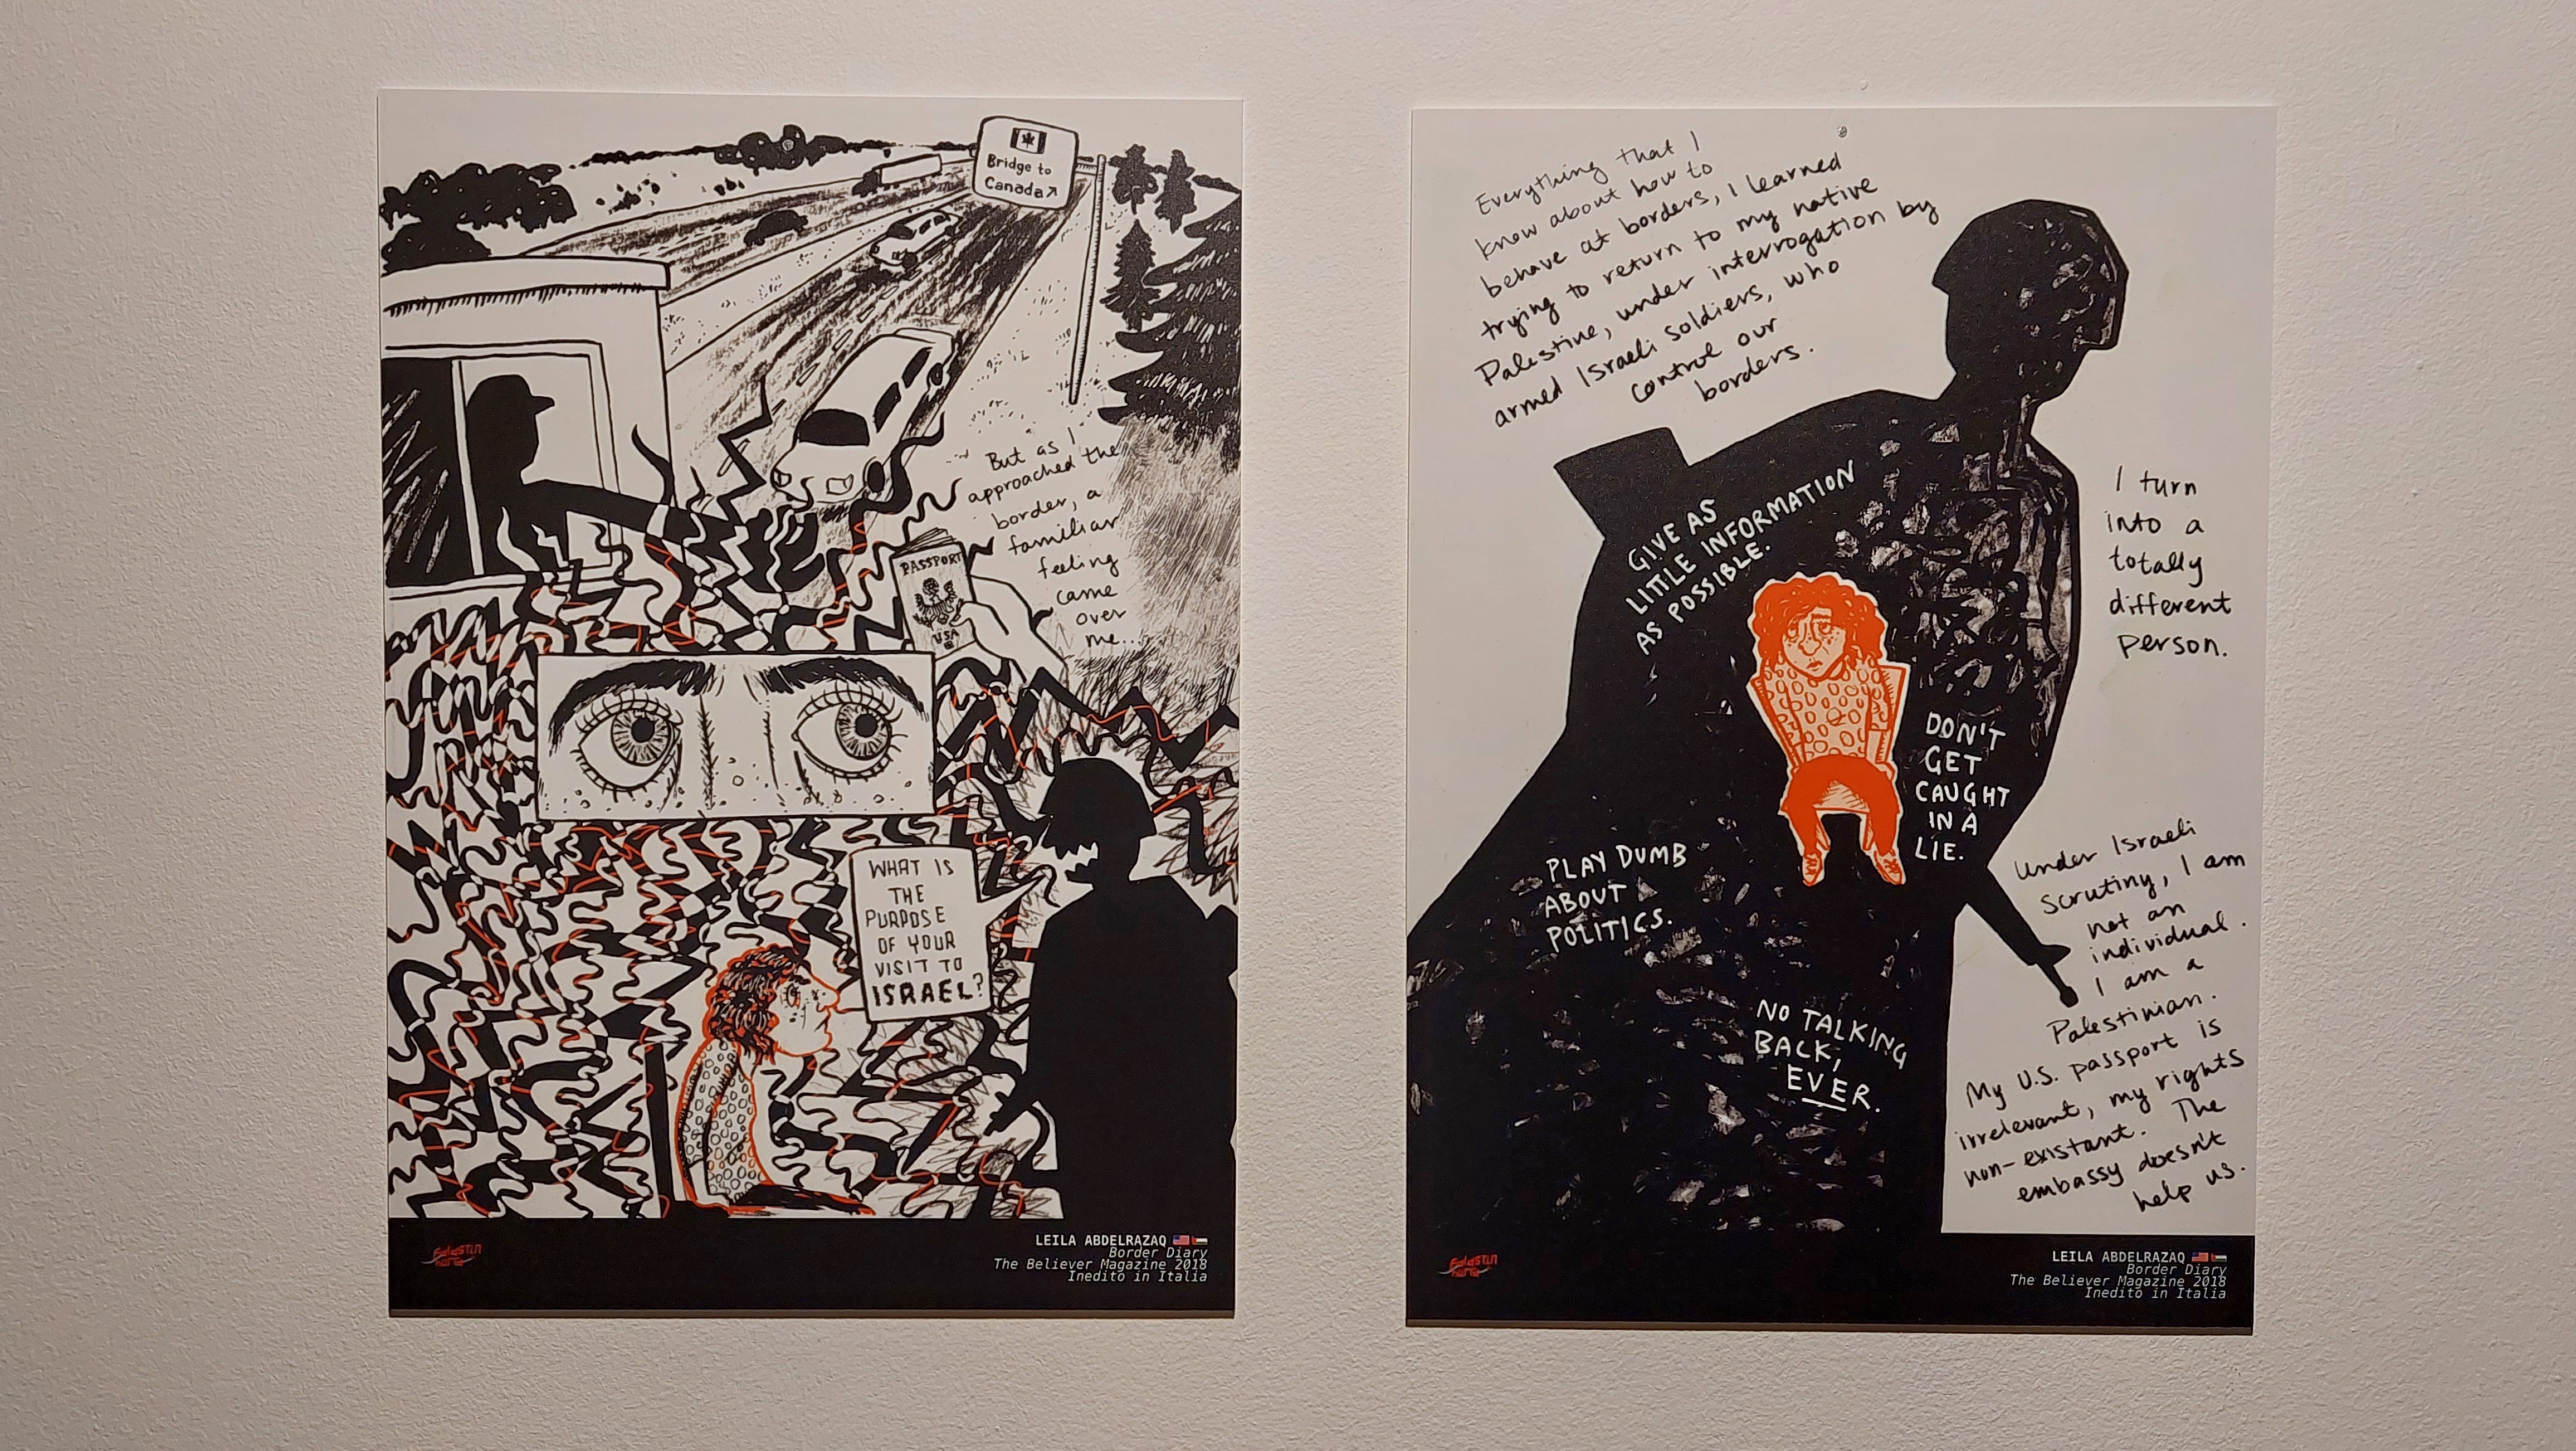 Bridge to
Canada↗
But as I
approached the
border, a
familiar
feeling
came
over
me...
PASSPORT
USA
WHAT IS
THE
PURPOSE
OF YOUR
VISIT TO
ISRAEL?
LEILA ABDELRAZAQ
Border Diary
The Believer Magazine 2018
Inedito in Italia
Everything that I
know about how to
behave at borders, I learned
trying to return to my native
Palestine, under interrogation by
armed Israeli soldiers, who
control our
borders.
I turn
into a
totally
different
person.
GIVE AS
LITTLE INFORMATION
AS POSSIBLE.
DON'T
GET
CAUGHT
IN A
LIE.
PLAY DUMB
ABOUT
POLITICS.
NO TALKING
BACK,
EVER.
Under Israeli
scrutiny, I am
not an
individual.
I am a
Palestinian.
My U.S. passport is
irrelevant, my rights
non-existant. The
embassy doesn't
help us.
LEILA ABDELRAZAQ
Border Diary
The Believer Magazine 2018
Inedito in Italia